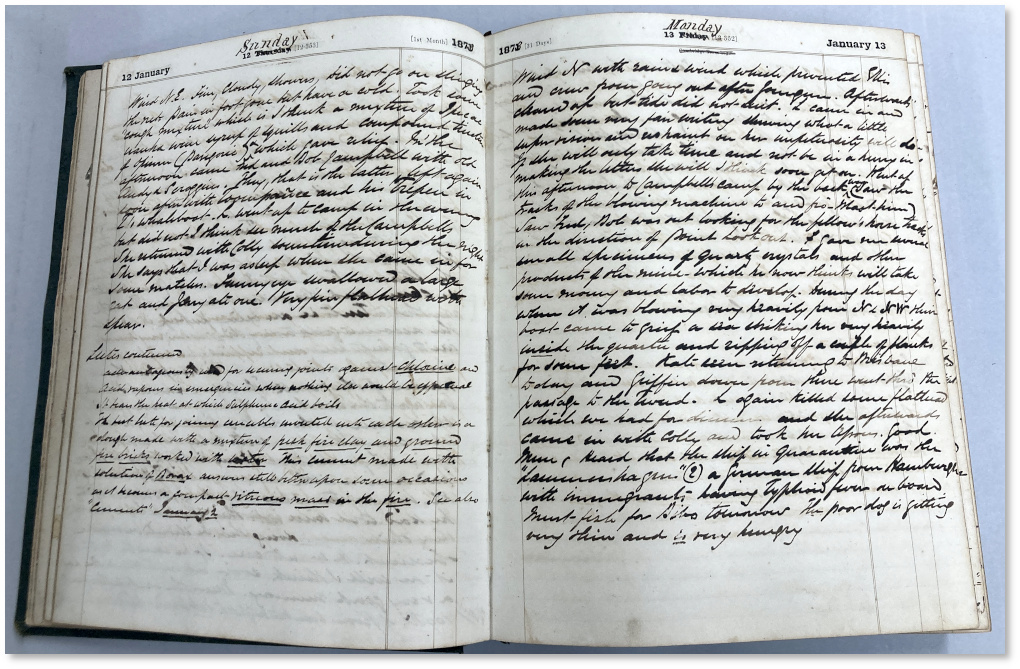 Sunday
12 January
12 Thursday [12-353]
[1st Month] 1873
Wind N.E. Fine, cloudy, showers, did not go on slinging
the nest. Pain in foot gone but have a cold. Took some
cough mixture which is I think a mixture of Ipecac
wine syrup of squills and compound tincture
of Opium which gave relief. In the
afternoon came Ted and Bob Campbell with old
that is the latter left again
soon after with and his in
whaleboat. K went up to camp in the evening
but did not I think see much of the Campbells
She returned with Colly sometime during the night
She says that I was asleep when she came in for
some matches. Sunnyeye swallowed a large
and Jerry ate one. Very fine flathead with
spear.
Lutes continued
for securing joints against Chlorine and
acid vapours in emergencies when nothing else would
It bears the heat at which Sulphuric Acid boils
The best lute for joining crucibles inverted into each other is a
dough made with a mixture of fresh fire clay and ground
fire bricks worked with water. This cement made with
solution of Borax answers still better upon some occasions
as it becomes a compact vitreous mass in the fire. See also
"Cements" January 2
Monday
1873 [31 Days]
13 Friday [12-352]
January 13
Wind N with rain & wind which prevented Ellis
and crew from going out after Afterwards
cleared up but tide did not suit. K came in and
made some very fair writing shewing what a little
supervision and restraint on her impetuosity will do.
If she will only take time and not be in a hurry in
making the letters she will I think soon get on. Went up
this afternoon to Campbells camp by the back. Saw the
tracks of the boring machine to and
Saw Fred, Bob was out looking for the fellows horse tracks
in the direction of Point Lookout. I gave me several
small specimens of quartz crystals and other
products of the mine which he now thinks will take
some money and labor to develop. During the day
when it was blowing very heavily from N & NW their
boat came to grief a sea striking her very heavily
inside the quarter and ripping off a couple of planks
for some feet. Kate returned to Brisbane
today and Griffin down from there went the
passage to the Tweed. K again killed some flathead
which we had for dinner and she afterwards
came in with Colly and took her lesson. Good.
Mem. Heard that the ship in quarantine was the
"Lammershagen" (2) a German ship from Hamburg
with immigrants having Typhoid fever on board
Must fish for Biles tomorrow the poor dog is getting
very thin and is very hungry